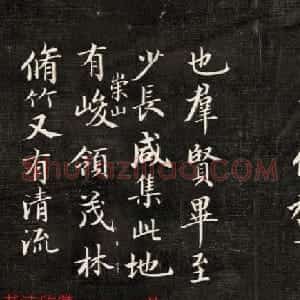 也羣賢畢至
少長咸集此地
有崇山峻領茂林
脩竹又有清流